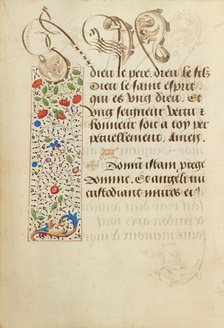 dieu le pere. dieu le filz
Dieu le saint esprit
qui es ung dieu. Et
ung seigneur vertu et
honneur soit a toy per
petuellement. Amen.
Domu istam protege
domine. Et angeli tui
custodiant muros et